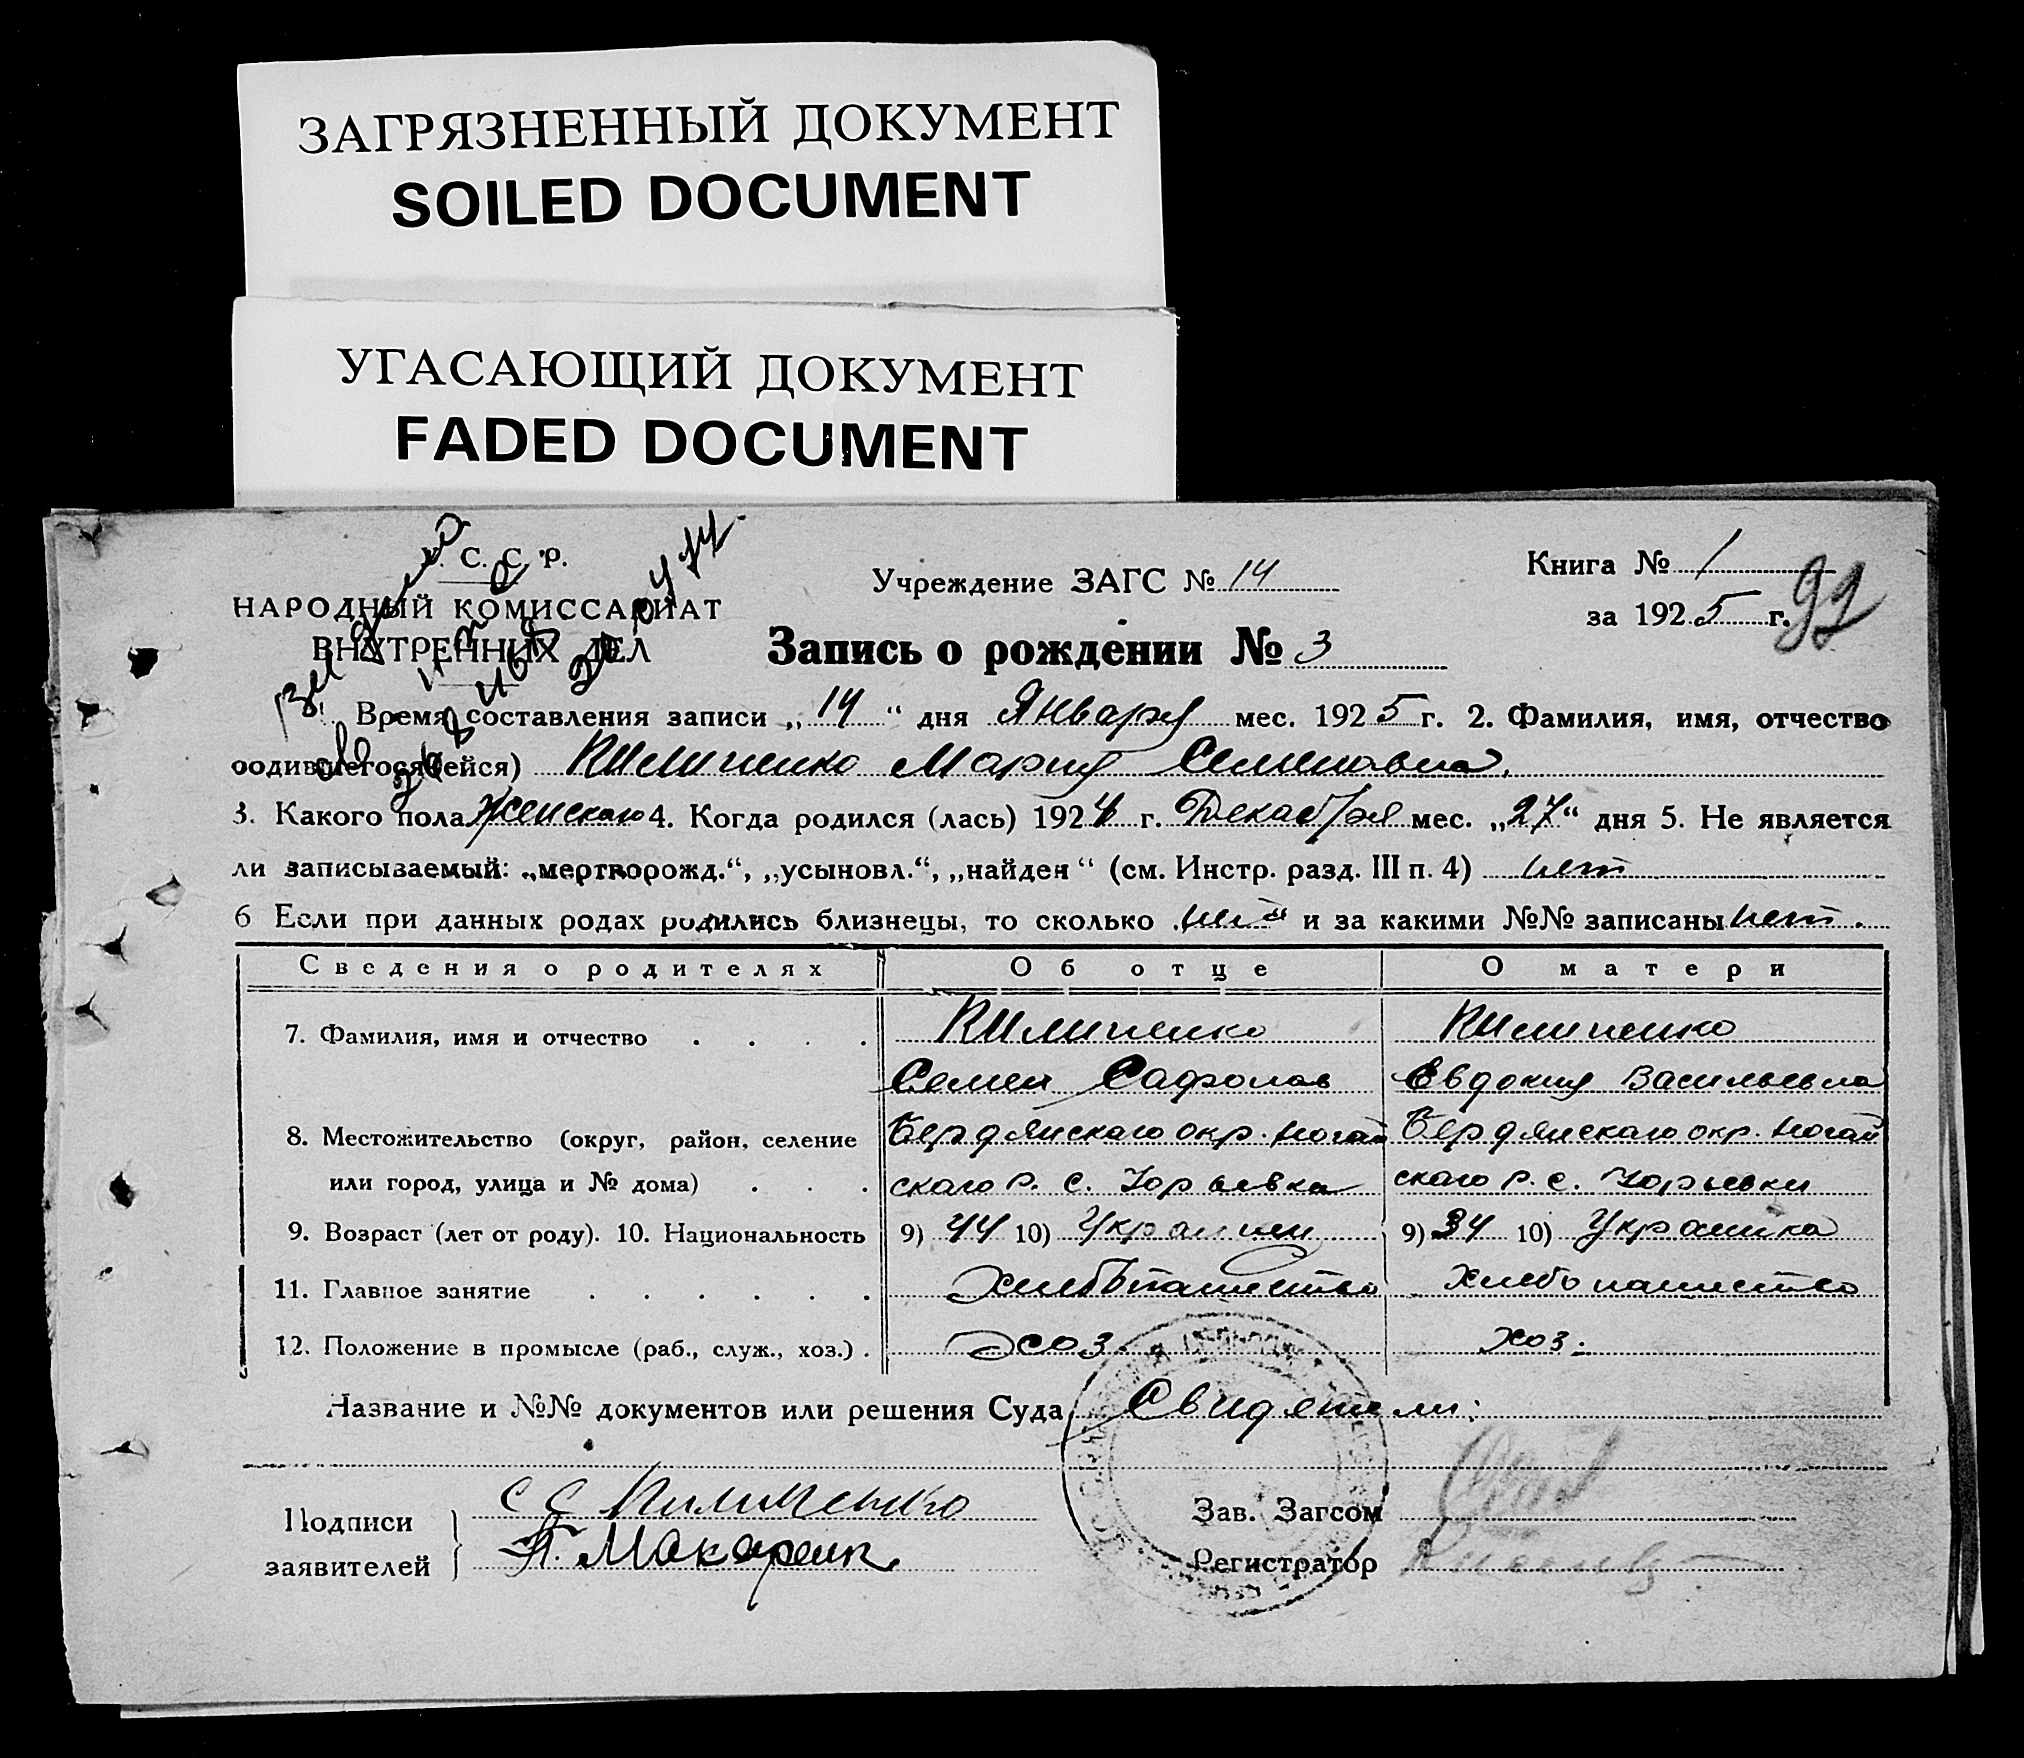 ЗАГРЯЗНЕННЫЙ ДОКУМЕНТ
SOILED DOCUMENT
УГАСАЮЩИЙ ДОКУМЕНТ
FADED DOCUMENT
У. С. С. Р.
НАРОДНЫЙ КОМИССАРИАТ
ВНУТРЕННИХ ДЕЛ
Учреждение ЗАГС № 14
Книга № 1
за 1925 г.
92
Запись о рождении № 3
Время составления записи „14“ дня Января мес. 1925 г. 2. Фамилия, имя, отчество
родившегося(ейся) Килипенко Мария Семеновна.
3. Какого пола женскаго 4. Когда родился (лась) 1924 г. Декабря мес. „27“ дня 5. Не является
ли записываемый: „мертворожд.“, „усыновл.“, „найден“ (см. Инстр. разд. III п. 4) нет
6 Если при данных родах родились близнецы, то сколько нет и за какими №№ записаны нет.
Сведения о родителях Об отце О матери
7. Фамилия, имя и отчество . . . . Килипенко Килипенко
Семен Сафонов Евдокия Васильевна
8. Местожительство (округ, район, селение Бердянскаго окр. Ногай Бердянскаго окр. Ногай
или город, улица и № дома) . . . скаго Р. с. Юрьевка скаго Р. с. Юрьевки
9. Возраст (лет от роду). 10. Национальность 9) 44 10) Украинец 9) 34 10) Украинка
11. Главное занятие . . . . . . Хлебопашество Хлебопашество
12. Положение в промысле (раб., служ., хоз.) . хоз. хоз.
Название и №№ документов или решения Суда Свидетели:
Подписи заявителей
С С Килипенко
П. Макаренк
Зав. Загсом
Регистратор